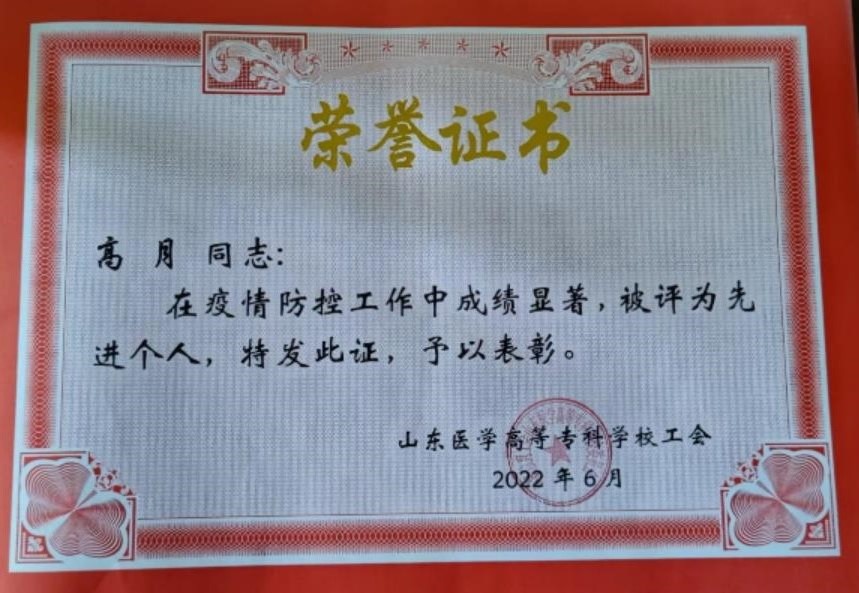 荣誉证书
高 月 同志：
在疫情防控工作中成绩显著，被评为先
进个人，特发此证，予以表彰。
山东医学高等专科学校工会
2022年6月